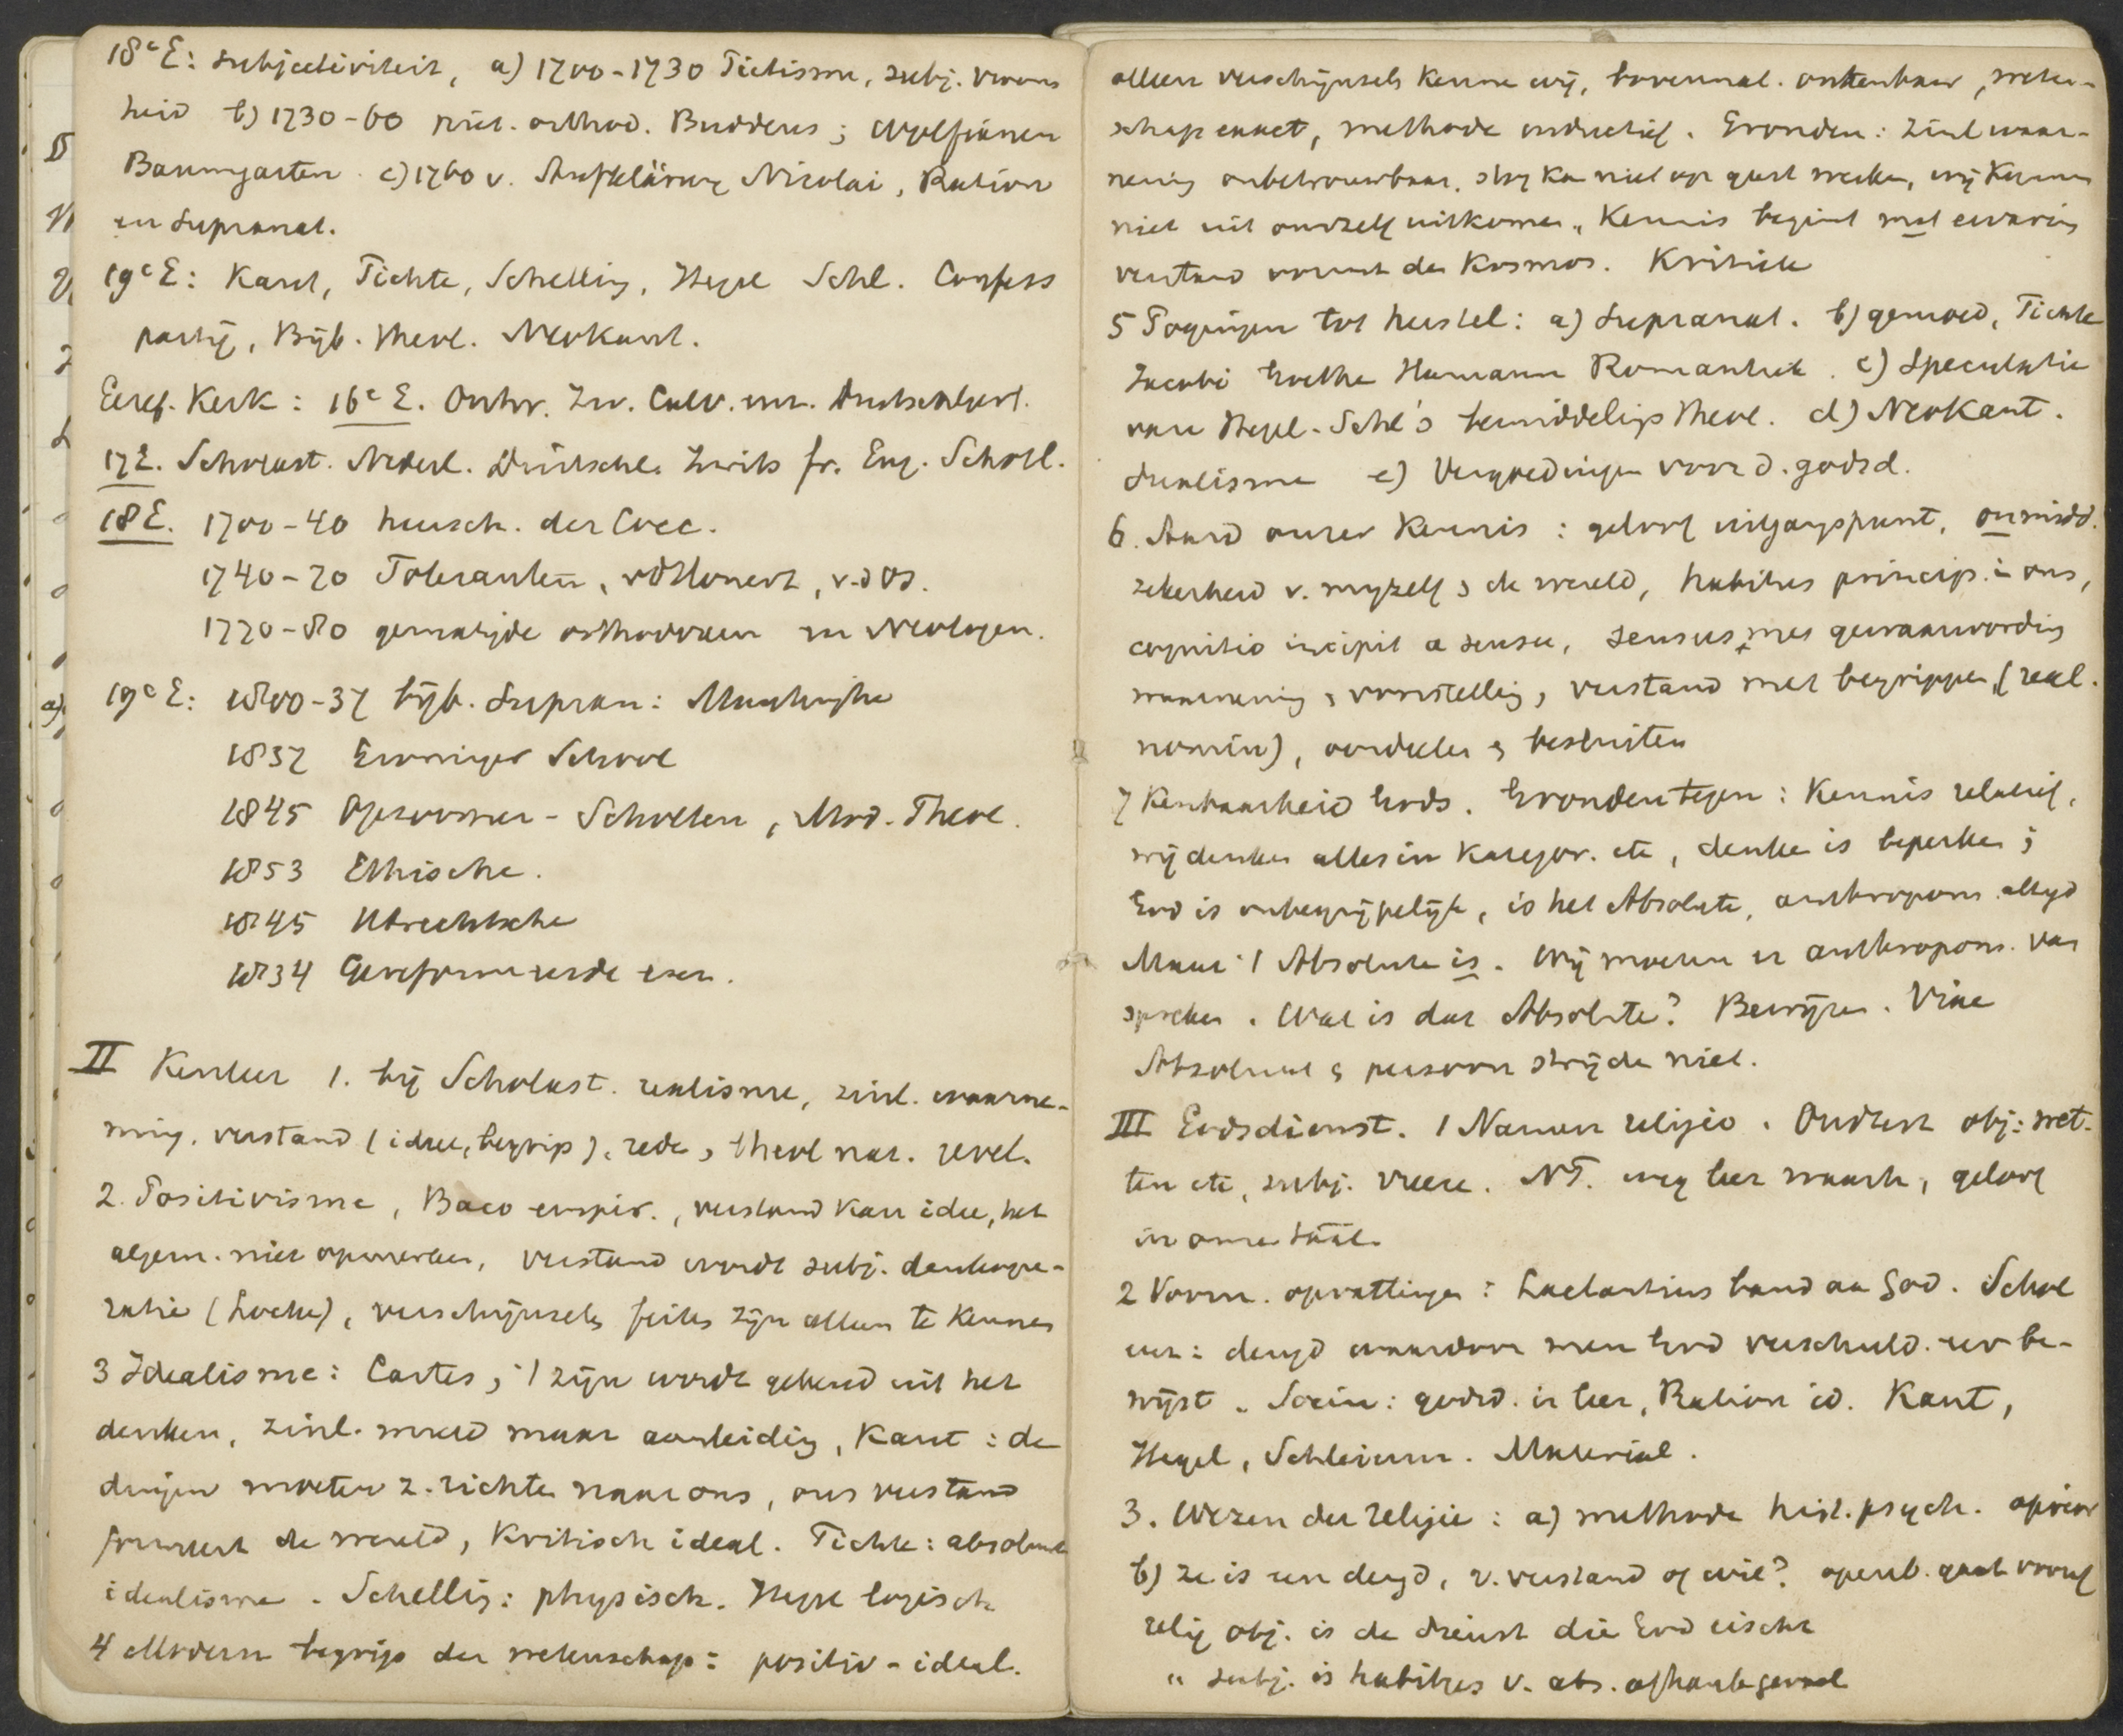 18ᵉ E: subjectiviteit, a) 1700-1730 Piëtisme, subj. vroom
heid b) 1730-60 piët. orthod. Buddeus; Wolfianen
Baumgarten c) 1760 v. Aufklärung Nicolai, Ration
en Supranat.
19ᵉ E: Kant, Fichte, Schelling, Hegel Schl. Confess
partij, Bijb. theol. Neokant.
Geref. Kerk: 16ᵉ E. Ontw. Zw. Calv. en
17 E. Scholast. Nederl. Duitschl. Zwits fr. Eng. Schotl.
18 E. 1700-40 heersch. der Cocc.
1740-70 Toleranten, vdHonert, v.d Os.
1770-80 gematigde orthodoxen en Neologen.
19ᵉ E: 1800-37 bijb. Supran: Muntinghe
1837 Groninger School
1845 Opzoomer - Scholten, Mod. Theol.
1853 Ethische.
1845 Utrechtsche
1834 Gereformeerde
II Kenleer 1. bij Scholast. realisme, zinl. waarne-
ming, verstand (idee, begrip), rede, theol nat. revel.
2. Positivisme, Baco empir., verstand kan idee, het
algem. niet opmerken, verstand wordt subj. denkope-
ratie (Locke), verschijnsels feiten zijn alleen te kennen
3 Idealisme: Cartes; 't zijn wordt gekend uit het
denken, zinl. wereld maar aanleiding, Kant: de
dingen moeten z. richten naar ons, ons verstand
formeert de wereld, Kritisch ideal. Fichte: absoluut
idealisme. Schelling: physisch. Hegel logisch
4 Modern begrip der wetenschap: positiv-ideal.
alleen verschijnsels kennen wij, bovennat. onkenbaar, weten-
schap exact, methode inductief. Gronden: zinl waar-
neming onbetrouwbaar, stof kan niet op geest werken, wij kunnen
niet uit onszelf uitkomen. Kennis begint met ervaring
verstand vormt den Kosmos. Kritiek
5 Pogingen tot herstel: a) Supranat. b) gemoed, Fichte
Jacobi Goethe Hamann Romantiek. c) Speculatie
van Hegel-Schl's bemiddelings theol. d) NeoKant.
dualisme e) Vergoedingen voor d. godsd.
6. Aard onzer Kennis: geloof uitgangspunt, onmidd.
zekerheid v. mijzelf & de wereld, habitus princip. in ons,
cognitio incipit a sensu, sensus met gewaarwording
waarneming, voorstelling, verstand met begrippen, (real.
nomin), oordeelen & besluiten
7 Kenbaarheid Gods. Gronden tegen: Kennis relatief,
wij denken alles in Kategor. etc, denken is beperken;
God is onbegrijpelijk, is het Absolute, anthropom. altijd
Maar 't Absolute is. Wij moeten er anthropom. van
spreken. Wat is dat Absolute? Bewijzen.
Absoluut & persoon strijden niet.
III Godsdienst. 1 Namen religio. Oudtest obj: wet-
ten etc, subj. vreeze. NT. weg leer waarh, geloof
in onze taal.
2 Voorn. opvattingen: Lactantius band aan God. Schol
deugd waardoor men God verschuld. eer be-
wijst. Socin: godsd. is leer, Ration id. Kant,
Hegel, Schleierm. Material.
3. Wezen der religie: a) methode hist. psych.
b) ze is een deugd, v. verstand of wil? openb. gaat vooraf
relig obj. is de dienst die God eischt
" subj. is habitus v. abs.